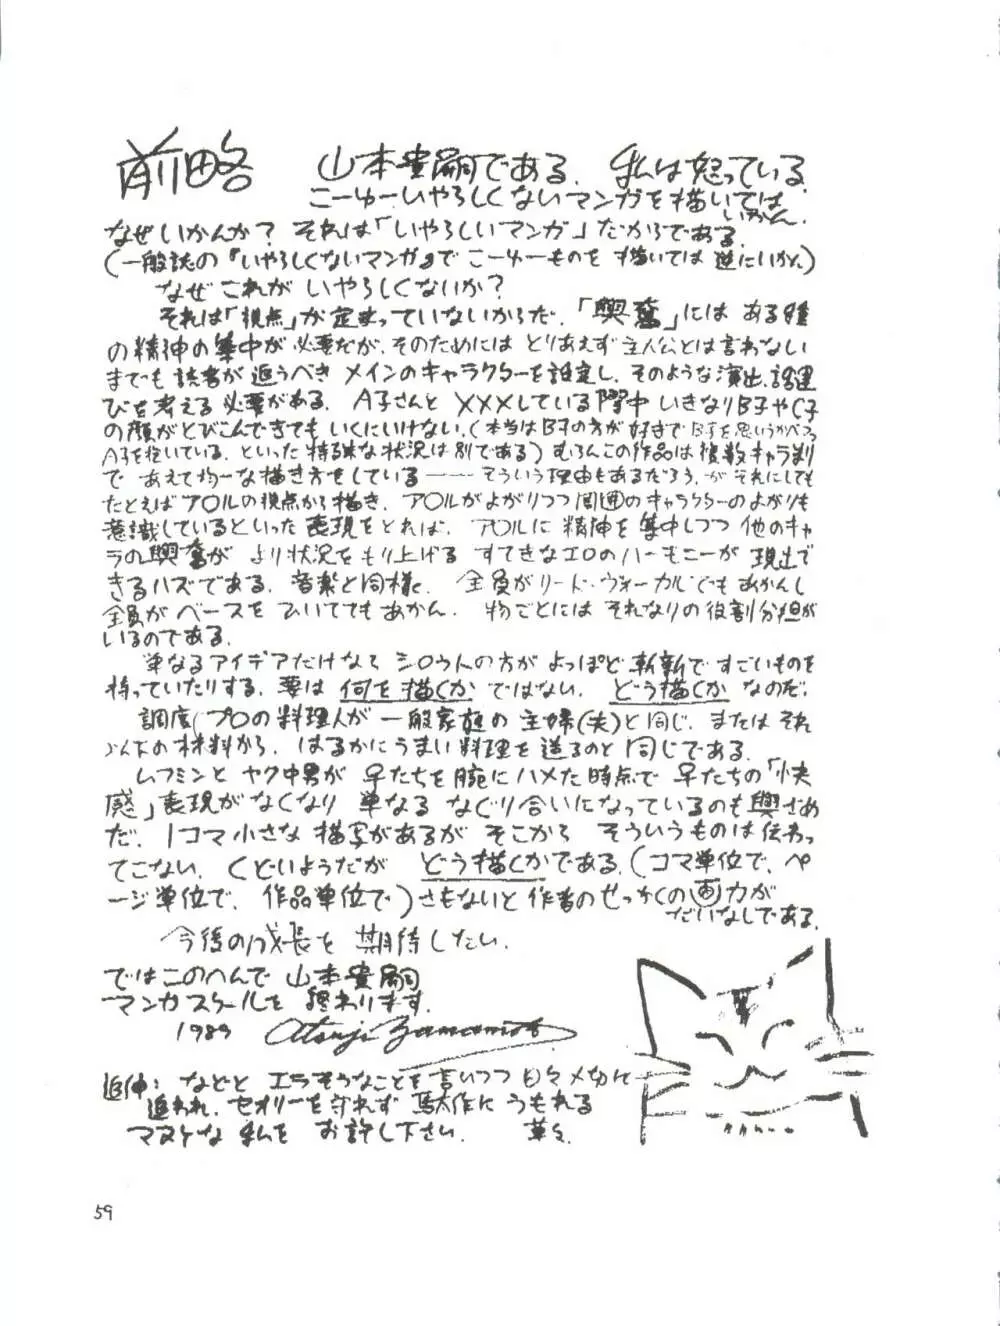 前略　山本貴嗣である。私は怒っている。
こーゆーいやらしくないマンガを描いては
いかん。
なぜいかんか？それは「いやらしいマンガ」だからである。
(一般誌の『いやらしくないマンガ』でこーゆーものを描いては逆にいかん)
なぜこれがいやらしくないか？
それは「視点」が定まっていないからだ。「興奮」にはある種
の精神の集中が必要だが、そのためにはとりあえず主人公とは言わない
までも読者が追うべきメインのキャラクターを設定し、そのような演出、話運
びを考える必要がある。A子さんと×××している際中いきなりB子やC子
の顔がとびこんできてもいくにいけない。(本当はB子の方が好きでB子を思いうかべつつ
A子を抱いている、といった特殊な状況は別である)むろんこの作品は複数キャラ
であえて均一な描き方をしている――そういう理由もあるだろう、がそれにしても
たとえばア○ルの視点から描き、ア○ルがよがりつつ周囲のキャラクターのよがりも
意識しているといった表現をとれば、ア○ルに精神を集中しつつ他のキャ
ラの興奮がより状況をもり上げるすてきなエロのハーモニーが現出で
きるハズである。音楽と同様に、全員がリード・ヴォーカルでもあかんし
全員がベースをひいててもあかん。物ごとにはそれなりの役割分担が
いるのである。
単なるアイデアだけならシロウトの方がよっぽど斬新ですごいものを
持っていたりする。要は何を描くかではない。どう描くかなのだ。
調度プロの料理人が一般家庭の主婦(夫)と同じ、またはそれ
以下の材料から、はるかにうまい料理を造るのと同じである。
ムフミンとヤク中男が早たちを腕にハメた時点で早たちの「快
感」表現がなくなり単なるなぐり合いになっているのも興ざめ
だ。1コマ小さな描写があるがそこからそういうものは伝わっ
てこない。くどいようだがどう描くかである。(コマ単位で、ペ
ージ単位で、作品単位で)さもないと作者のせっかくの画力が
だいなしである。
今後の成長を期待したい。
ではこのへんで山本貴嗣
マンガスクールを終わります。
1989 Atsuji Yamamoto
追伸：などとエラそうなことを言いつつ日々〆切に
追われ、セオリーを守れず駄作にうもれる
マヌケな私をお許し下さい。草々
59